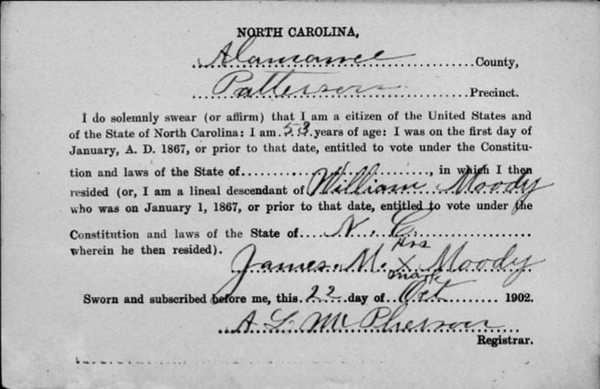 NORTH CAROLINA,
Alamance County,
Patterson Precinct.
I do solemnly swear (or affirm) that I am a citizen of the United States and
of the State of North Carolina: I am 53 years of age: I was on the first day of
January, A. D. 1867, or prior to that date, entitled to vote under the Constitu-
tion and laws of the State of ...................., in which I then
resided (or, I am a lineal descendant of William Moody
who was on January 1, 1867, or prior to that date, entitled to vote under the
Constitution and laws of the State of N. C.
wherein he then resided).
his
James M. X Moody
mark
Sworn and subscribed before me, this 22 day of Oct 1902.
A. L. McPherson
Registrar.